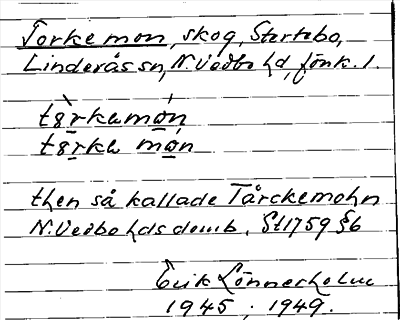 Torkemon, skog, Stertebo,
Linderås sn, N. Vedbo hd, Jönk. l.
tɤ̀rkəmón
tɤrkə món
then så kallade Tårckemohn
N. Vedbo hds domb. St 1759 §6
Erik Lönnerholm
1945, 1949.